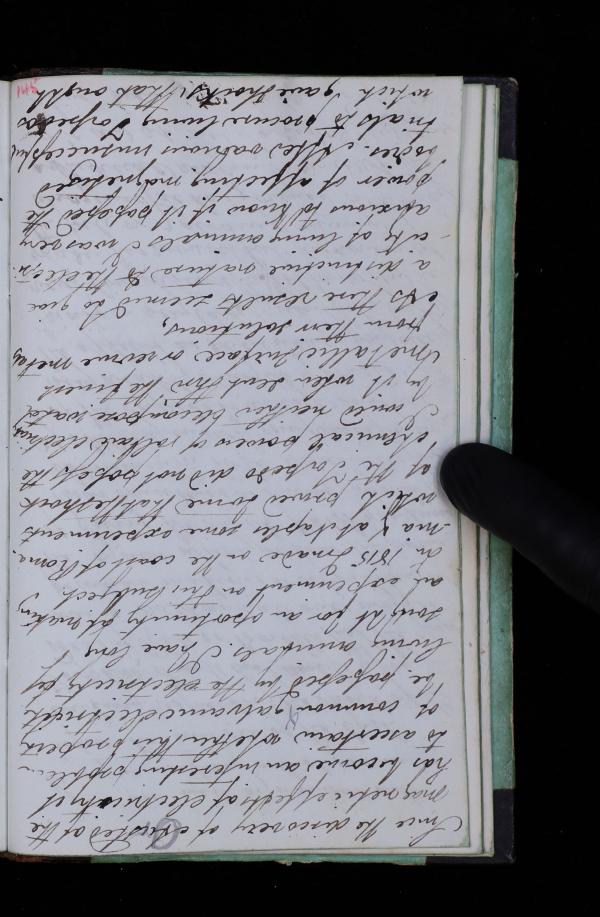 Since the discovery of Ørsted of the
magnetic effects of electricity it
has become an interesting problem
to ascertain whether this property
of common & galvanic electricity
be possessed by the electricity of
living animals. I have long
sought for an opportunity of making
an experiment on this subject.
In 1815 I made on the coast of Roma
-nia & at Naples some experiments
which proved to me that the shock
of the Torpedo did not possess the
chemical powers of voltaic electricity,
I could neither decompose water
by it when sent thro the finest
metallic surface or revive metals
from their solutions,
& as these results seemed to give
a distinctive nature to the electri
-city of living animals I was very
anxious to know if it possessed the
power of affecting magnetised
bodies. After various unsuccessful
trials to procure living Torpedos
which gave shocks, that caught
145